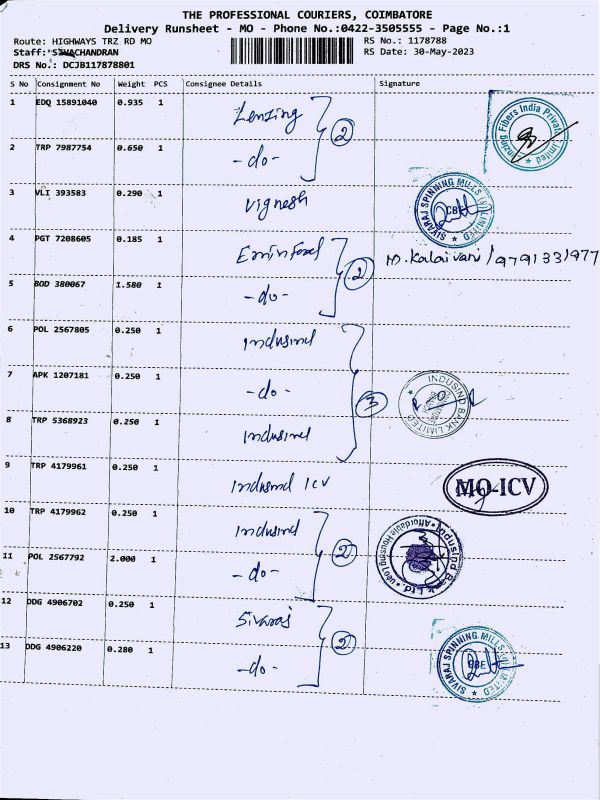 THE PROFESSIONAL COURIERS, COIMBATORE
Delivery Runsheet - MO - Phone No.:0422-3505555 - Page No.:1
Route: HIGHWAYS TRZ RD MO RS No.: 1178788
Staff: SIVACHANDRAN RS Date: 30-May-2023
DRS No.: DCJB117878801
S No Consignment No Weight PCS Consignee Details Signature
1 EDQ 15891040 0.935 1 Lenzing
2 TRP 7987754 0.650 1 -do- 2
3 VLI 393583 0.290 1 Vignesh
4 PGT 7208605 0.185 1 M. Kalaivani/9791331977
5 BOD 380067 1.580 1 -do- 2
6 POL 2567805 0.250 1 Indusind
7 APK 1207181 0.250 1 -do- 3
8 TRP 5368923 0.250 1 Indusind
9 TRP 4179961 0.250 1 Indusind ICV MO-ICV
10 TRP 4179962 0.250 1 Indusind
11 POL 2567792 2.000 1 -do- 2
12 DDG 4906702 0.250 1 Sivaraj
13 DDG 4906220 0.280 1 -do- 2
Lenzing Fibers India Private Limited
SIVARAJ SPINNING MILLS (P) LIMITED
CBE
INDUSIND BANK LIMITED
IndusInd Bank Ltd
Affordable Housing Loan
SIVARAJ SPINNING MILLS (P) LIMITED
CBE